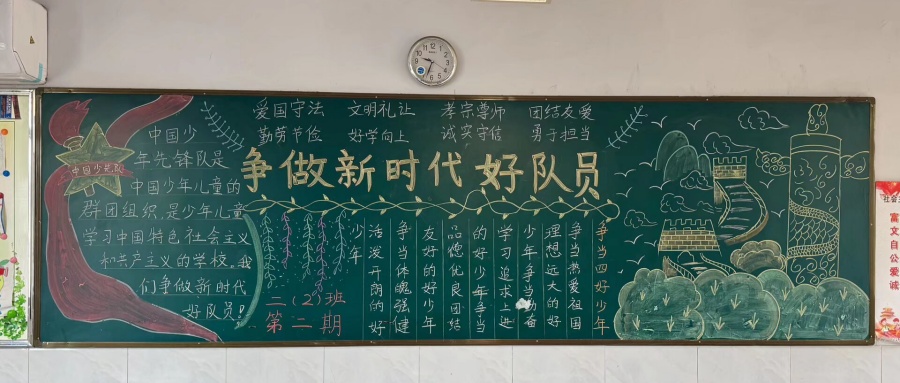 中国少先队
中国少
年先锋队是
中国少年儿童的
群团组织，是少年儿童
学习中国特色社会主义
和共产主义的学校。我
们争做新时代
好队员！
爱国守法 文明礼让 孝宗尊师 团结友爱
勤劳节俭 好学向上 诚实守信 勇于担当
争做新时代 好队员
争当四好少年
争当热爱祖国
理想远大的好
少年争当勤奋
学习追求上进
的好少年争当
品德优良团结
友好的好少年
争当体魄强健
活泼开朗的好
少年
二(2)班
第二期
社会主
富
文
自
公
爱
诚